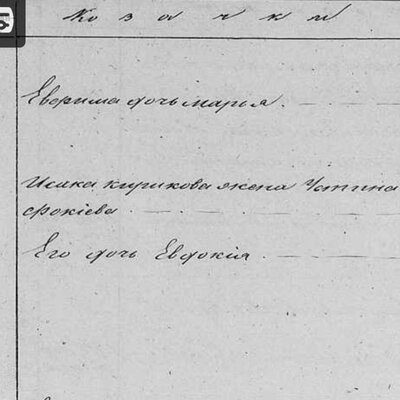 Козачки
Еверима дочь марья
Исака кирикова жена Устина
фокіева
Его дочь Евдокія